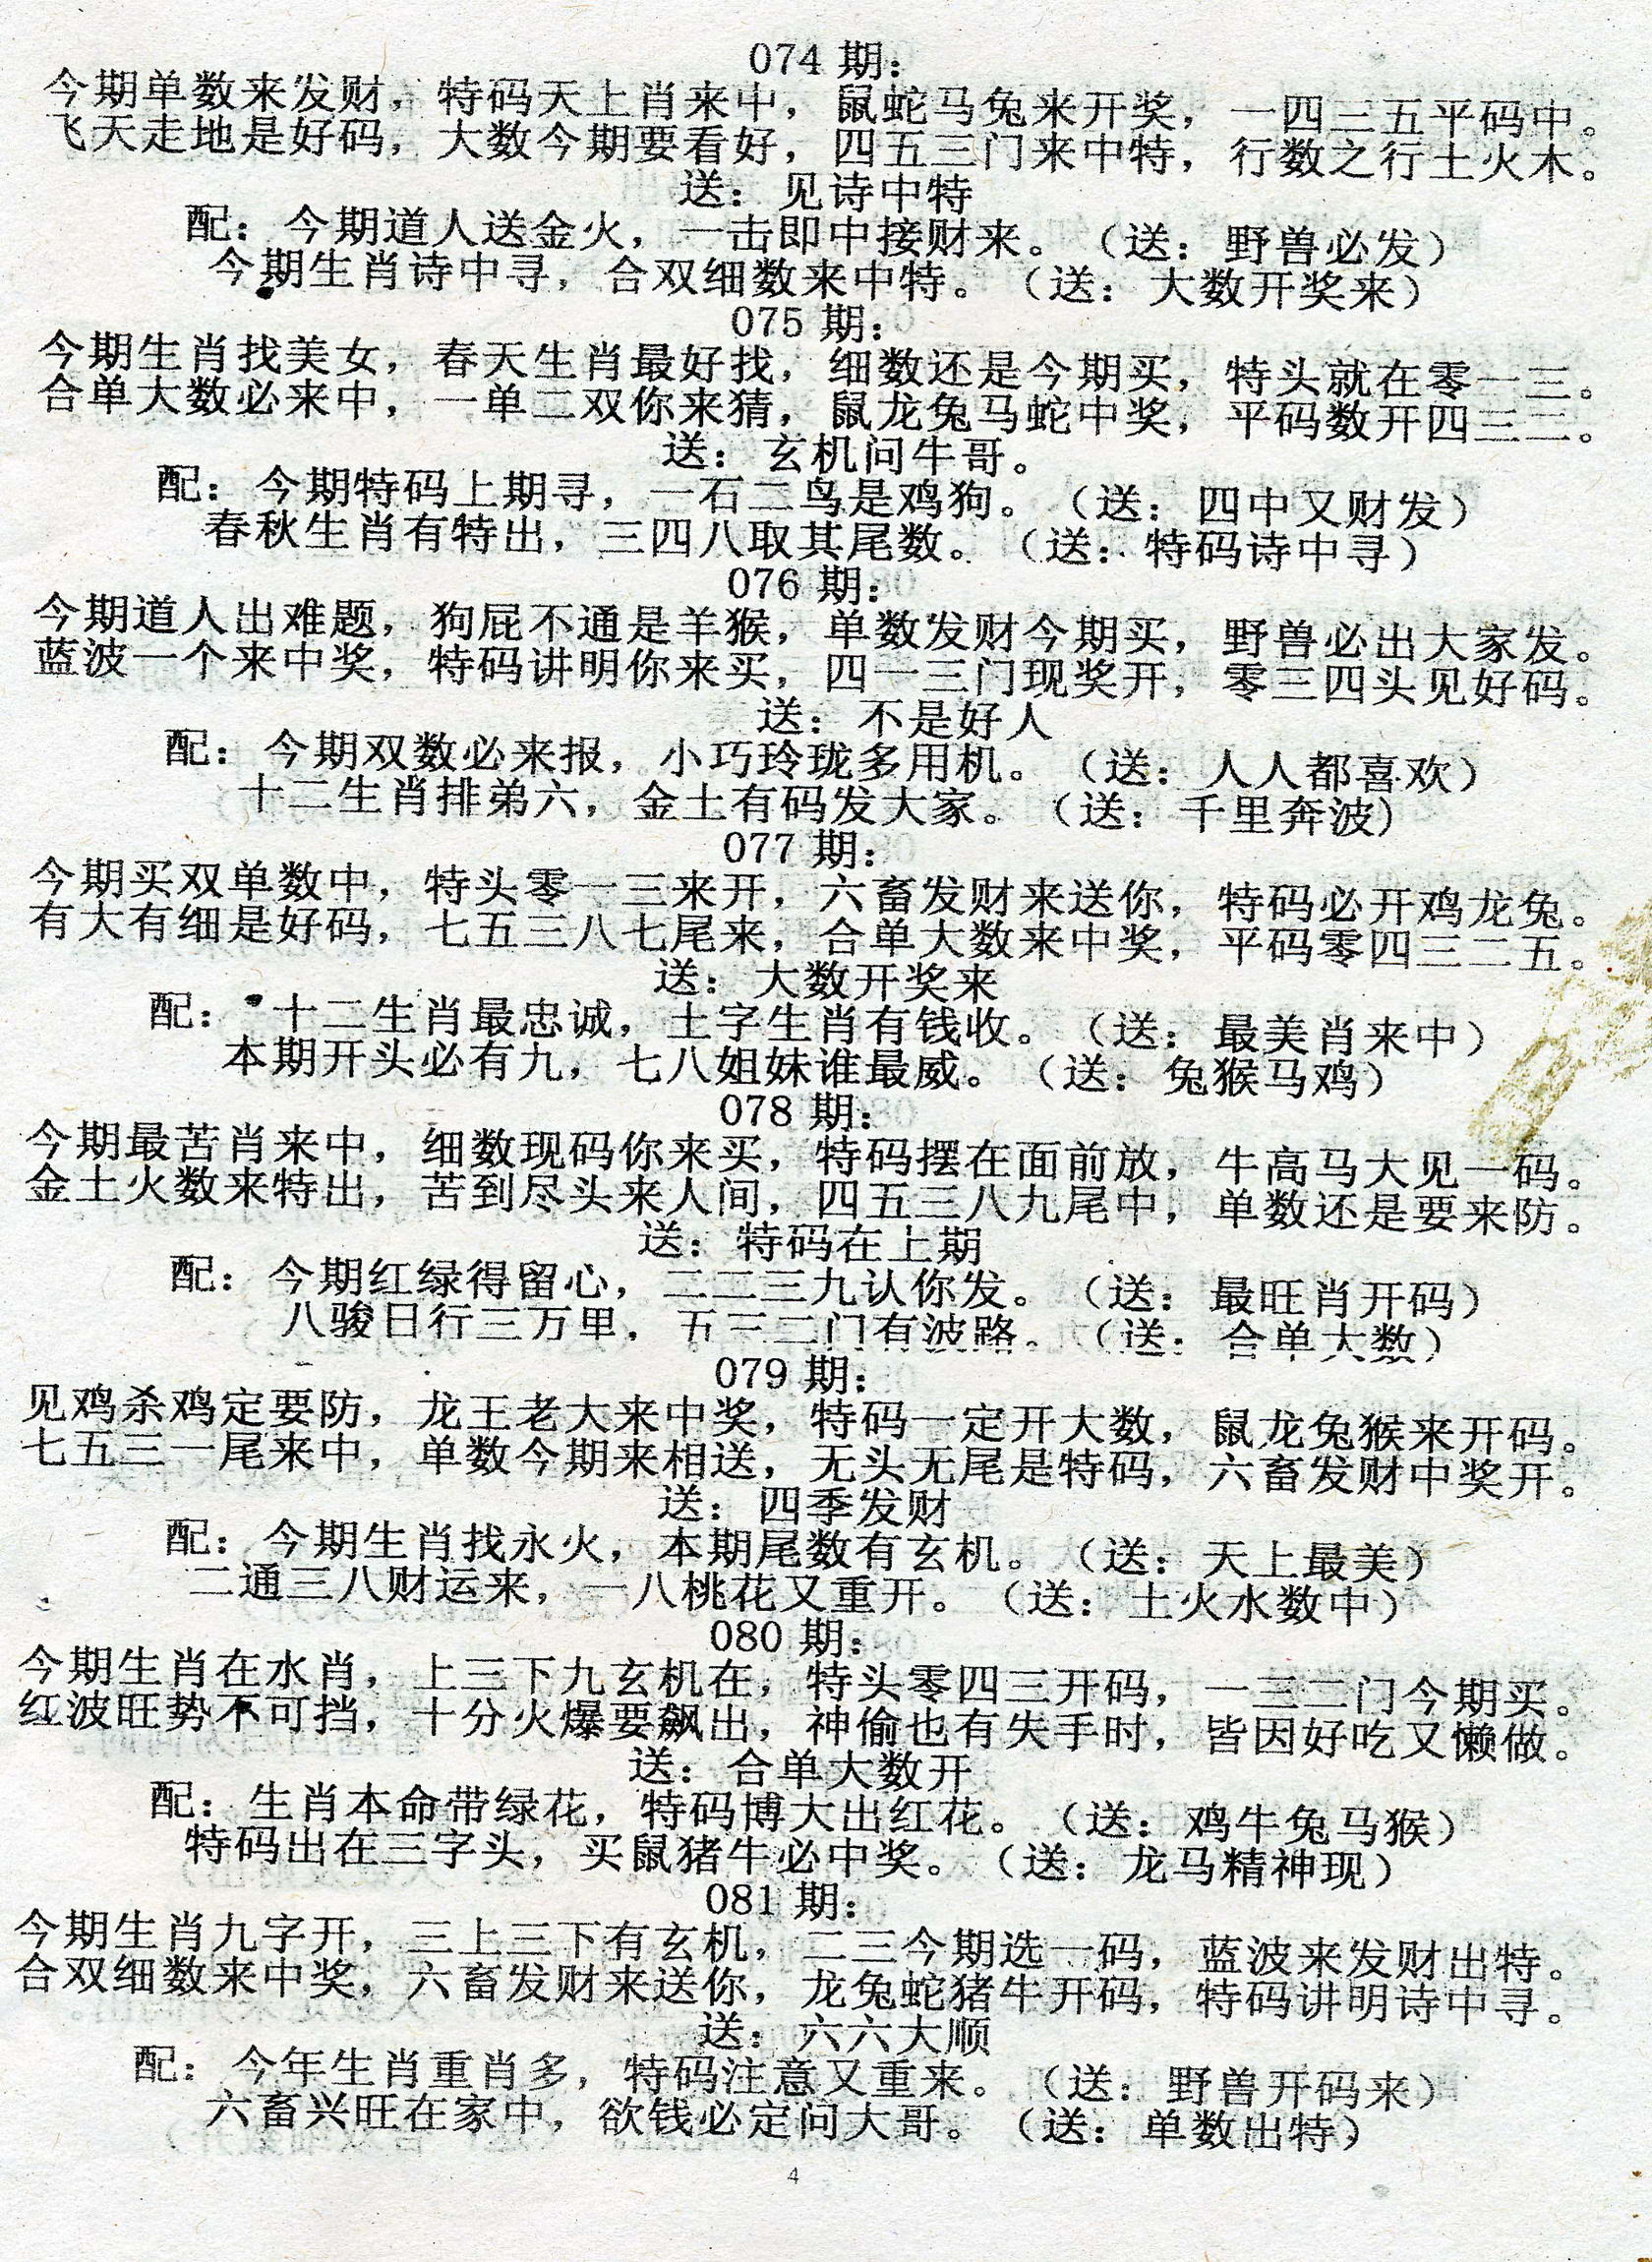 074 期：
今期单数来发财，特码天上肖来中，鼠蛇马兔来开奖，一四三五平码中。
飞天走地是好码，大数今期要看好，四五三门来中特，行数之行土火木。
送：见诗中特
配：今期道人送金火，一击即中接财来。（送：野兽必发）
今期生肖诗中寻，合双细数来中特。（送：大数开奖来）
075 期：
今期生肖找美女，春天生肖最好找，细数还是今期买，特头就在零一三。
合单大数必来中，一单二双你来猜，鼠龙兔马蛇中奖，平码数开四三二。
送：玄机问牛哥。
配：今期特码上期寻，一石二鸟是鸡狗。（送：四中又财发）
春秋生肖有特出，三四八取其尾数。（送：特码诗中寻）
076 期：
今期道人出难题，狗屁不通是羊猴，单数发财今期买，野兽必出大家发。
蓝波一个来中奖，特码讲明你来买，四一三门现奖开，零三四头见好码。
送：不是好人
配：今期双数必来报，小巧玲珑多用机。（送：人人都喜欢）
十二生肖排弟六，金土有码发大家。（送：千里奔波）
077 期：
今期买双单数中，特头零一三来开，六畜发财来送你，特码必开鸡龙兔。
有大有细是好码，七五三八七尾来，合单大数来中奖，平码零四三二五。
送：大数开奖来
配：十二生肖最忠诚，土字生肖有钱收。（送：最美肖来中）
本期开头必有九，七八姐妹谁最威。（送：兔猴马鸡）
078 期：
今期最苦肖来中，细数现码你来买，特码摆在面前放，牛高马大见一码。
金土火数来特出，苦到尽头来人间，四五三八九尾中，单数还是要来防。
送：特码在上期
配：今期红绿得留心，二二三九认你发。（送：最旺肖开码）
八骏日行三万里，五三二门有波路。（送：合单大数）
079 期：
见鸡杀鸡定要防，龙王老大来中奖，特码一定开大数，鼠龙兔猴来开码。
七五三一尾来中，单数今期来相送，无头无尾是特码，六畜发财中奖开。
送：四季发财
配：今期生肖找永火，本期尾数有玄机。（送：天上最美）
二通三八财运来，一八桃花又重开。（送：土火水数中）
080 期：
今期生肖在水肖，上三下九玄机在，特头零四三开码，一三二门今期买。
红波旺势不可挡，十分火爆要飙出，神偷也有失手时，皆因好吃又懒做。
送：合单大数开
配：生肖本命带绿花，特码博大出红花。（送：鸡牛兔马猴）
特码出在三字头，买鼠猪牛必中奖。（送：龙马精神现）
081 期：
今期生肖九字开，三上三下有玄机，二三今期选一码，蓝波来发财出特。
合双细数来中奖，六畜发财来送你，龙兔蛇猪牛开码，特码讲明诗中寻。
送：六六大顺
配：今年生肖重肖多，特码注意又重来。（送：野兽开码来）
六畜兴旺在家中，欲钱必定问大哥。（送：单数出特）
4